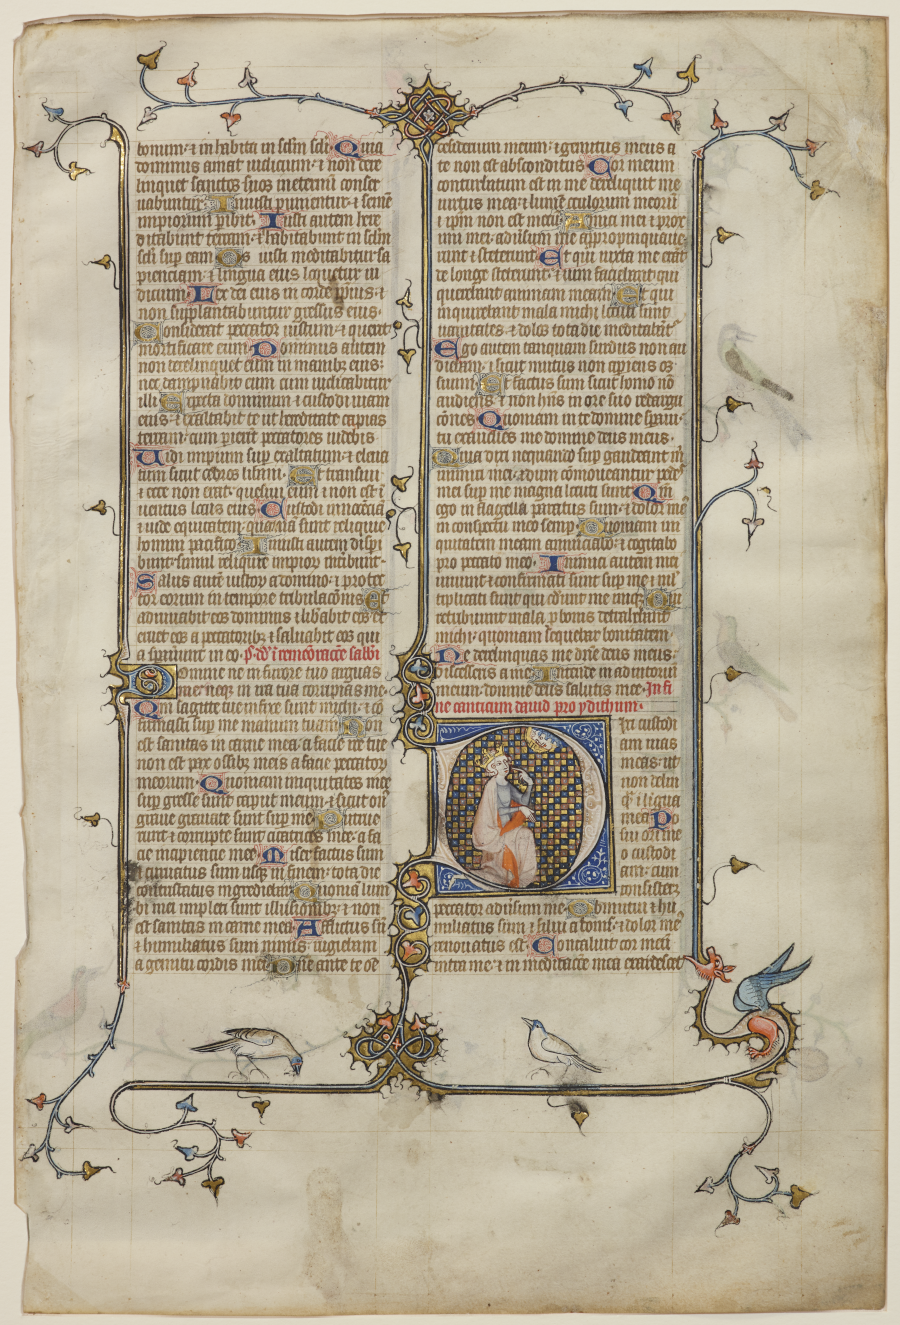 bonum· ⁊ in habita in sc̃lm sc̃li· Quia
dominus amat iudicium· ⁊ non dere
linquet sanctos suos in eternū conser
uabuntur· Iniusti punientur· ⁊ semē
impiorum pibit· Iusti autem here
ditabunt terram· ⁊ habitabunt in sc̃lm
sc̃li sup eam· Os iusti meditabitur sa
pienciam· ⁊ lingua eius loquetur iu
dicium· Lex dei eius in corde ip̄ius· ⁊
non supplantabuntur gressus eius·
Considerat peccator iustum· ⁊ querit
mortificare eum· Dominus autem
non derelinquet eum in manibꝫ eius·
nec dampnabit eum cum iudicabitur
illi· Expecta dominum ⁊ custodi uiam
eius· ⁊ exaltabit te ut hereditate capias
terram· cum pierīt peccatores uidebis
Uidi impium sup exaltatum· ⁊ eleua
tum sicut cedres libani· Et transiui
⁊ ecce non erat· quesiui eum ⁊ non est ī
uentus locus eius· Custodi innocēciā
⁊ uide equitatem· quoniā sunt reliquie
homini pacifico· Iniusti autem dispi
bunt· simul reliquie impioꝝ intibunt·
Salus autē iustoꝝ a domino· ⁊ protec
tor eorum in tempore tribulac̄onis· Et
adiuuabit eos dominus ⁊ libabit eos· et
eruet eos a peccatoribꝫ ⁊ saluabit eos qui
a sperauerunt in eo·
Domine ne in furore tuo arguas
me· neqꝫ in ira tua corripias me·
Qm̄ sagitte tue infixe sunt michi· ⁊ cō
firmasti sup me manum tuam· Non
est sanitas in carne mea a facie ire tue
non est pax ossibꝫ meis a facie peccatoꝝ
meorum· Quoniam iniquitates mee
sup gresse sunt caput meum· ⁊ sicut on9
graue grauate sunt sup me· Putrue
runt ⁊ corrupte sunt cicatrices mee· a fa
cie insipiencie mee· Miser factus sum
⁊ curuatus sum usqꝫ in finem· tota die
contristatus ingrediebr· Quoniā lum
bi mei impleti sunt illusionibꝫ· ⁊ non
est sanitas in carne mea· Afflictus sū
⁊ humiliatus sum nimis· rugiebam
a gemitu cordis mei· Dne ante te oē
desiderium meum· ⁊ gemitus meus a
te non est absconditus· Cor meum
conturbatum est in me dereliquit me
uirtus mea· ⁊ lumē oculorum meorū
⁊ ip̄m non est mecū· Amici mei ⁊ prox
imi mei· adūsum me appropinquaue
runt ⁊ steterunt· Et qui iuxta me erāt
de longe steterunt· ⁊ uim faciebant· qui
querebant animam meam· Et qui
inquirebant mala michi locuti sunt
uanitates· ⁊ dolos tota die meditabāt
Ego autem tanquam surdus non au
diebam· ⁊ sicut mutus non apiens os
suum· Et factus sum sicut homo nō
audiens ⁊ non hn̄s in ore suo redargu
c̄ones· Quoniam in te domine spaui·
tu exaudies me domine deus meus·
Quia dixi nequando sup gaudeant m̄
inimici mei· ⁊ dum cōmoueantur pedes
mei sup me magna locuti sunt· Qm̄
ego in flagella paratus sum· ⁊ dolor me9
in conspectu meo semp· Quoniam ini
quitatem meam annunciabo· ⁊ cogitabo
pro peccato meo· Inimici autem mei
uiuunt ⁊ confirmati sunt sup me ⁊ ml
tiplicati sunt qui oderunt me inique· Qui
retribuunt mala p bonis detrahebant
michi· quoniam sequebar bonitatem·
Ne derelinquas me dn̄e deus meus·
ne discesseris a me· Intende in adiutoriū
meum· domine deus salutis mee· In fi
ne canticum dauid pro ydithum·
Dixi custodi
am uias
meas· ut
non delin
quā ī lingua
mea· Po
sui ori me
o custodi
am· cum
consisteret
peccator adūsum me· Obmutui ⁊ hu
miliatus sum ⁊ silui a bonis· ⁊ dolor me9
renouatus est· Concaluit cor meū
intra me· ⁊ in meditac̄one mea exardescet